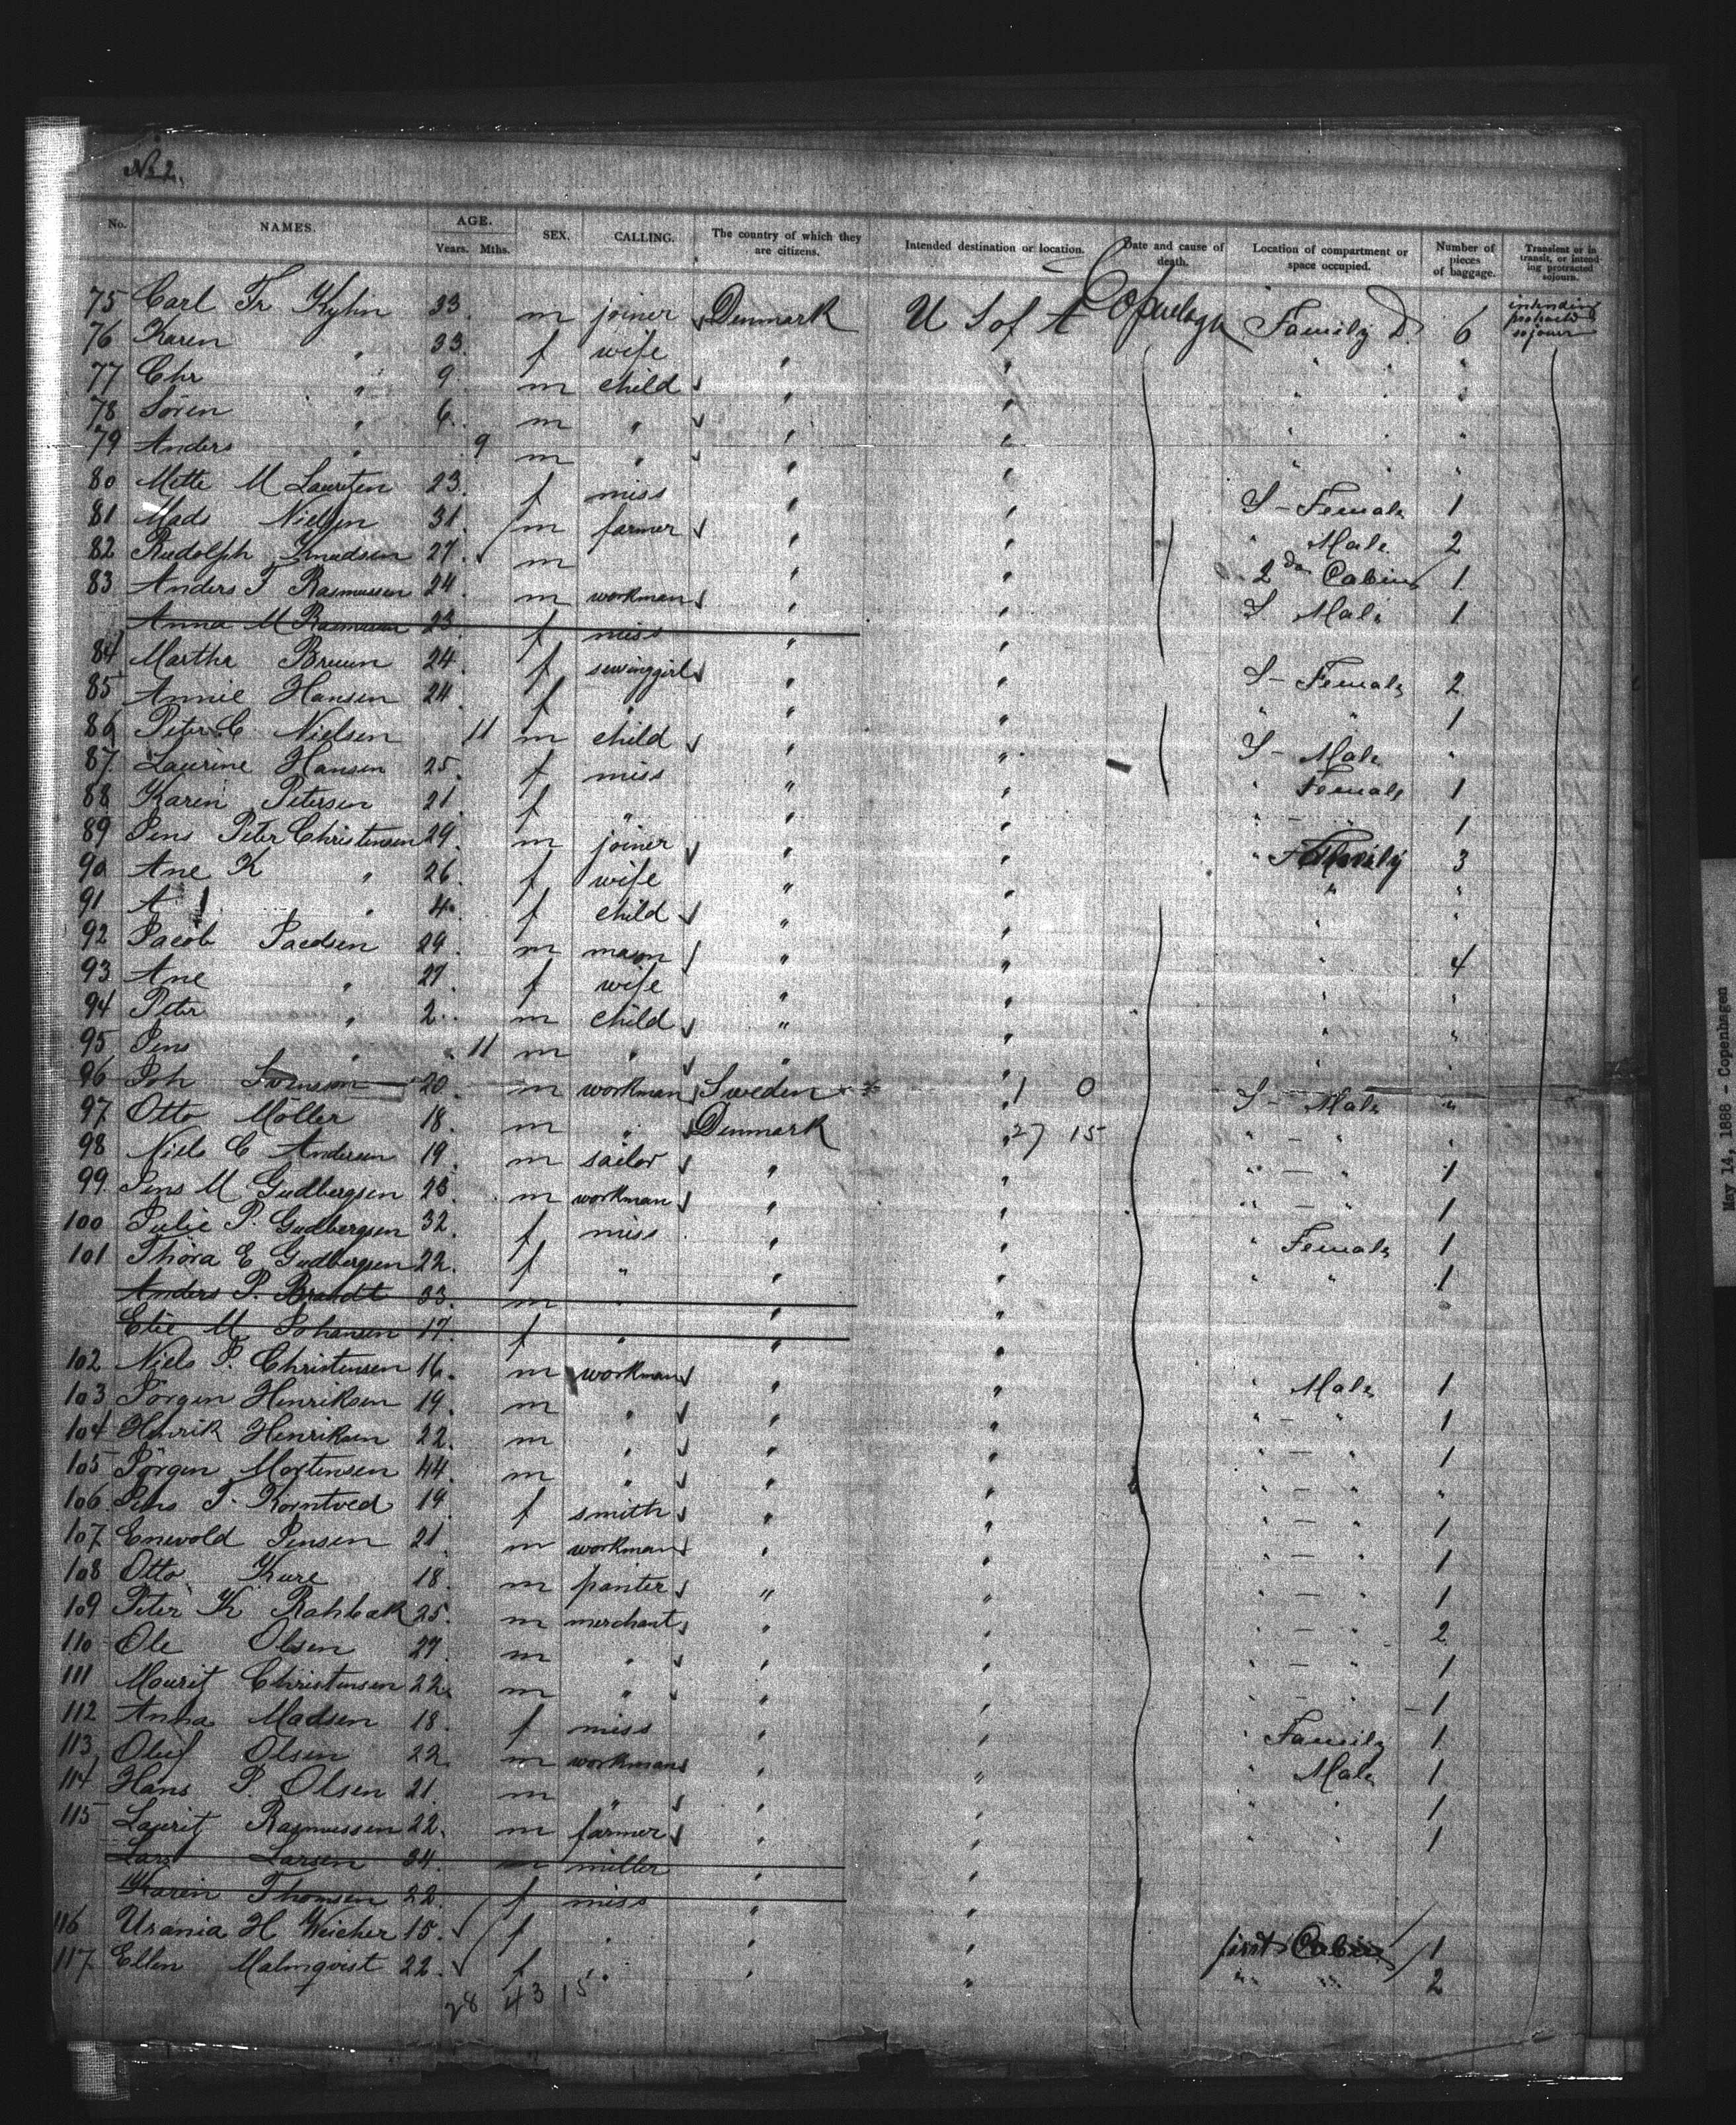 No 2.
No. NAMES. AGE. Years. Mths. SEX. CALLING. The country of which they are citizens. Intended destination or location. Date and cause of death. Location of compartment or space occupied. Number of pieces of baggage. Transient or in transit, or intending protracted sojourn.
75 Carl Fr Kyhn 33. m joiner Denmark U S of A Copenhagen Family D. 6 intending protracted sojourn
76 Karen " 33. f wife " " " "
77 Chr " 9. m child " " " "
78 Sören " 6. m " " " " "
79 Anders " 9 m " " " " "
80 Mette M Lauritzen 23. f miss " " S - Female 1
81 Mads Nielsen 31. m farmer " " " Male 2
82 Rudolph Knudsen 27. m " " 2 Cabin 1
83 Anders F Rasmussen 24. m workman " " S. Male 1
Anna M Rasmussen 23. f miss " "
84 Martha Bruun 24. f sewinggirl " " S - Female 2
85 Annie Hansen 24. f " " " " " 1
86 Peter C Nielsen 11 m child " " S - Male "
87. Laurine Hansen 25. f miss " " " Female 1
88 Karen Petersen 21. f " " " " - " 1
89 Jens Peter Christensen 29. m joiner " " " Family 3
90 Ane K " 26. f wife " " " "
91 A " 4. f child " " " "
92 Jacob 29. m mason " " " 4
93 Ane " 27. f wife " " " "
94 Peter " 2. m child " " " "
95 Jens " 11 m " " " "
96 Joh Svenson 20. m workman Sweden " 1 0 S - Male "
97. Otto Möller 18. m " Denmark " 27 15 " - " "
98 Niels C Andersen 19. m sailor " " " - " 1
99. Jens M Gudbergsen 23. m workman " " " - " 1
100 Julie P. Gudbergsen 32. f miss " " " Female 1
101 Thora E Gudbergsen 22. f " " " " " 1
Anders P. Brandt 33. m " " "
Elie M Johansen 17. f " " "
102 Niels P. Christensen 16. m workman " " " Male 1
103 Jörgen Henriksen 19. m " " " " - " 1
104 Henrik Henriksen 22. m " " " " - " 1
105 Jörgen Mortensen 44. m " " " " - " "
106. Jens T. Korntved 19 f smith " " " - " 1
107 Enevold Jensen 21. m workman " " " - " 1
108 Otto Kure 18. m painter " " " - " 1
109 Peter K Rahbek 25. m merchant " " " - " 2
110 Ole Olsen 27. m " " " " - " 1
111 Mourit Christensen 22. m " " " " - " 1
112 Anna Madsen 18. f miss " " " Family 1
113 Oluf Olsen 22. m workman " " " Male 1
114 Hans P. Olsen 21. m " " " " " 1
115 Laurit Rasmussen 22. m farmer " " " " 1
Lars Larsen 34. m miller " "
Karen Thomsen 22. f miss " "
116 Urania H Weicher 15. f " " " first Cabin 1
117. Ellen Malmqvist 22. f " " " " " 2
28 43 15
May 14, 1888 - Copenhagen